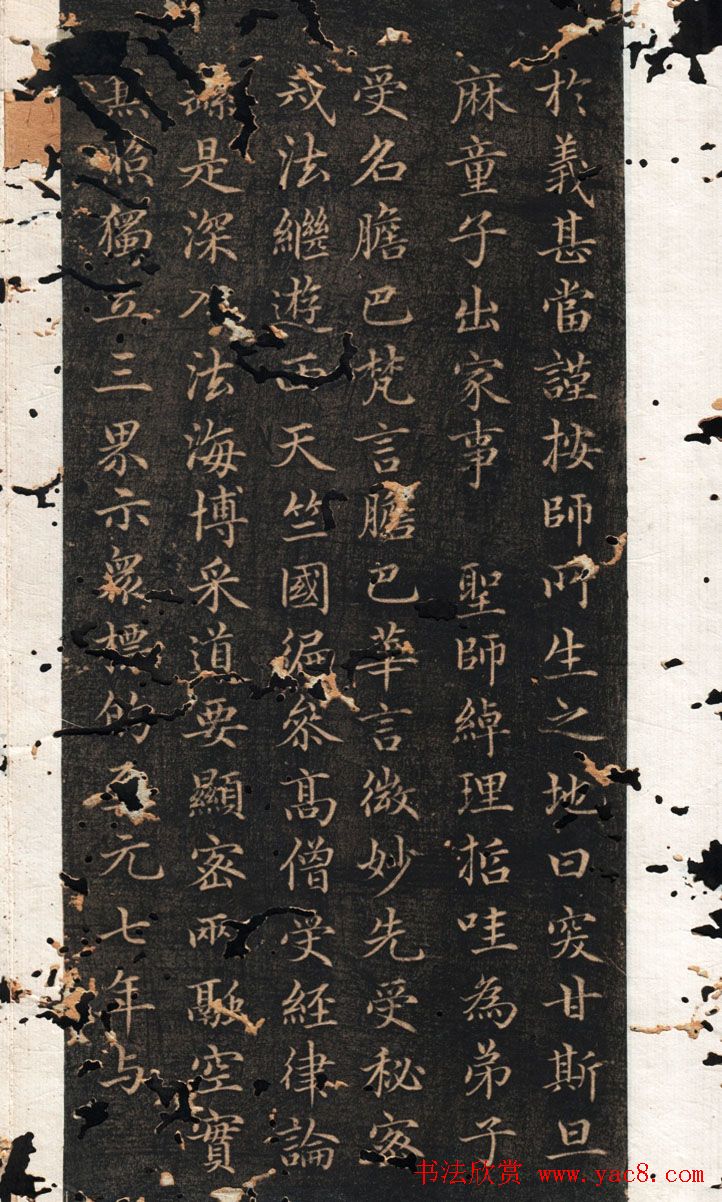 於義甚當謹按師所生之地曰突甘斯旦
麻童子出家事 聖師綽理哲哇為弟子
受名膽巴梵言膽巴華言微妙先受秘密
戒法繼遊西天竺國徧叅高僧受経律論
繇是深入法海博采道要顯密兩融空實
照獨立三界示衆標的至元七年与
书法欣赏 www.yac8.com